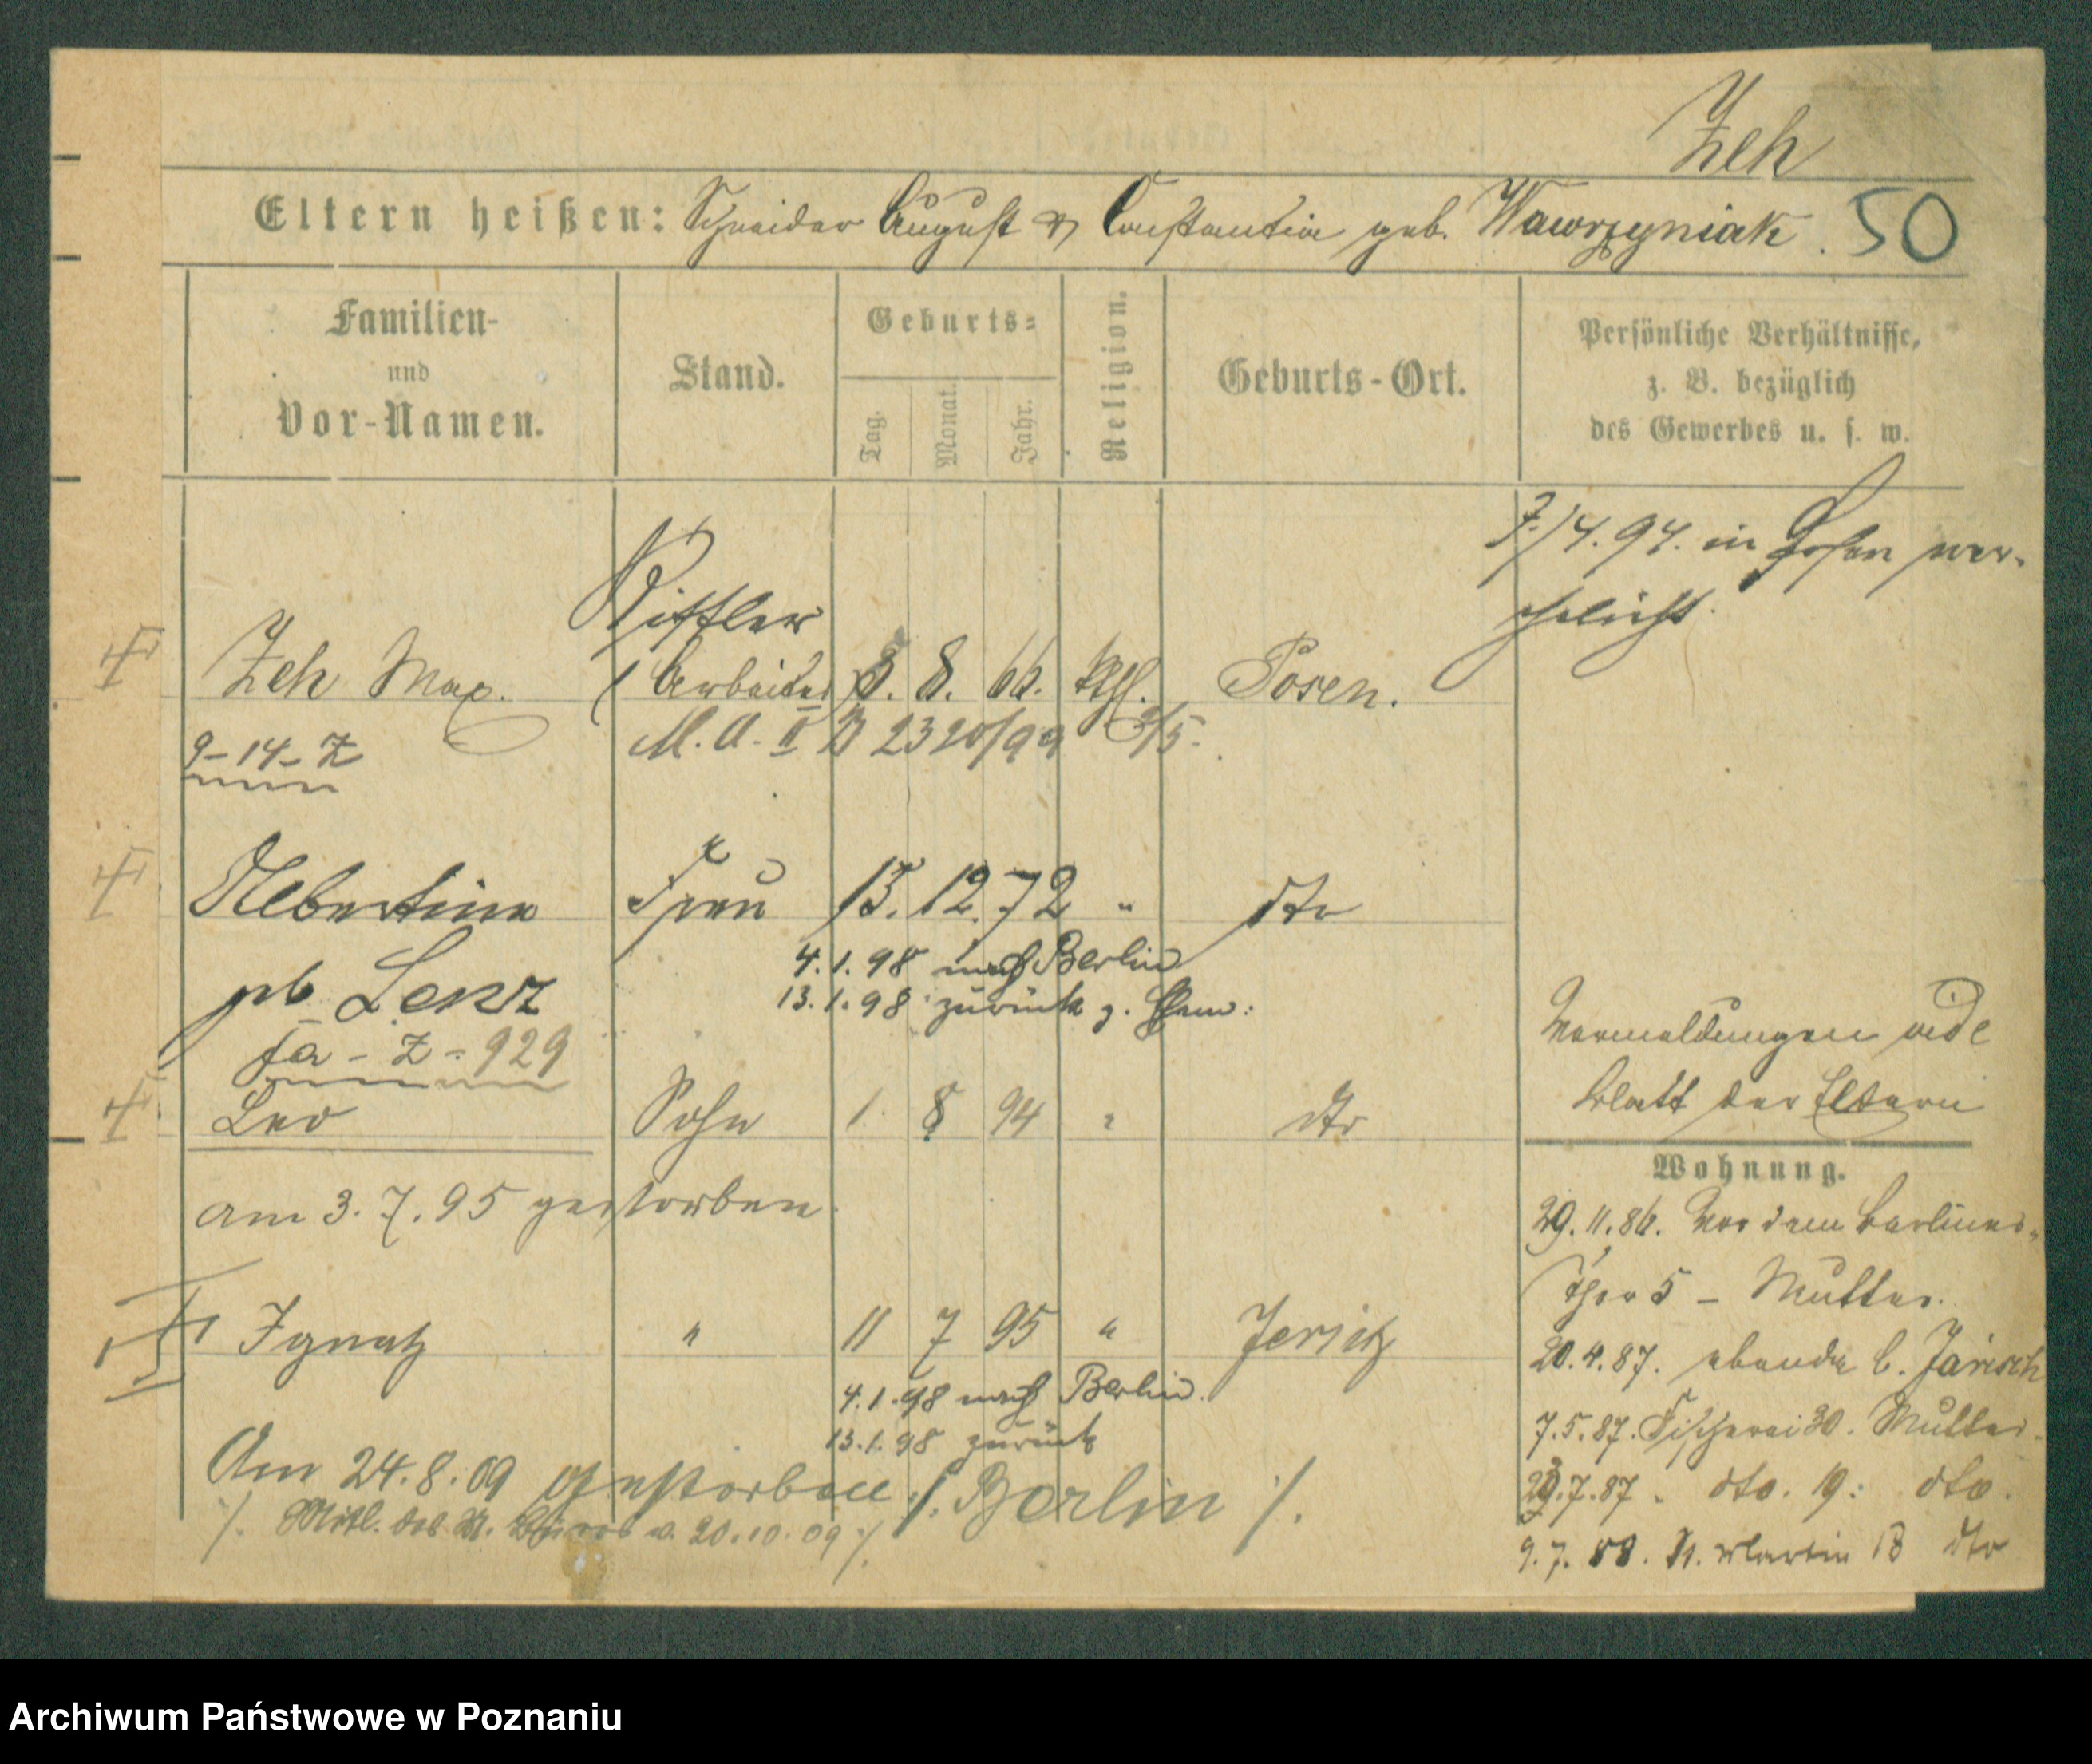 Zeh
Eltern heißen: Schneider August & Constantia geb. Wawrzyniak. 50
Familien-
und
Vor-Namen.
Stand.
Geburts-
Tag.
Monat.
Jahr.
Religion.
Geburts-Ort.
Persönliche Verhältnisse,
z. B. bezüglich
des Gewerbes u. s. w.
7./4.94. in Posen ver-
ehelicht.
Zeh Max. Arbeiter 8. 8. 66. kth. Posen.
9-14-Z
M. A. II B 2320/99 3/5.
Albertine Frau 13. 12. 72 " dto
4.1.98 nach Berlin
geb Lenz
13.1.98 zurück z. Ehem:
fa - Z - 929
Leo Sohn 1 8 94 " dto
am 3.7.95 gestorben
Ignatz " 11 7 95 " Jersitz
4.1.98 nach Berlin.
13.1.98 zurück
Am 24.8.09 gestorben /. Berlin /.
/. Mitl. des St. Büros v. 20.10.09 /.
Vormeldungen vide
Blatt der Eltern
Wohnung.
29.11.86. Vor dem Berliner-
Thor 5 - Mutter.
20.4.87. ebenda b. Janisch
7.5.87. Fischerei 30. Mutter.
29.7.87. dto. 19: dto.
9.7.88. St. Martin 18 dto